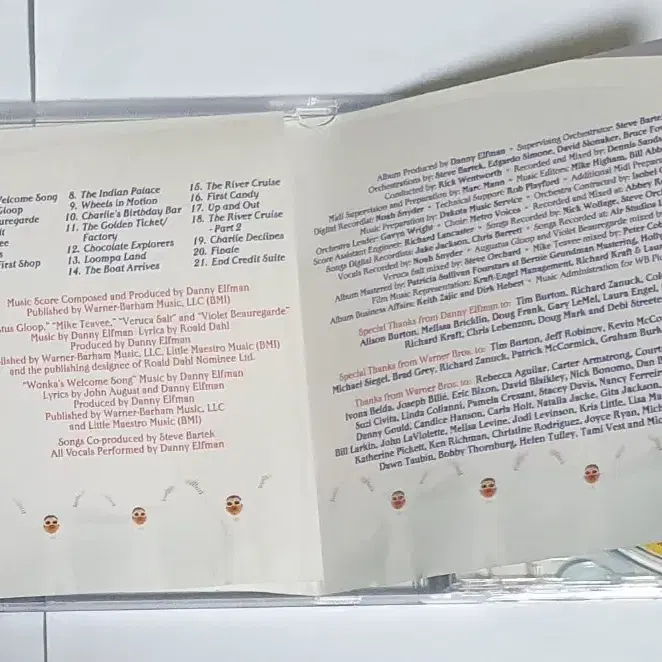 elcome Song
loop
uregarde
lt
ee
s
irst Shop
8. The Indian Palace
9. Wheels in Motion
10. Charlie's Birthday Bar
11. The Golden Ticket/
Factory
12. Chocolate Explorers
13. Loompa Land
14. The Boat Arrives
15. The River Cruise
16. First Candy
17. Up and Out
18. The River Cruise
- Part 2
19. Charlie Declines
20. Finale
21. End Credit Suite
Music Score Composed and Produced by Danny Elfman
Published by Warner-Barham Music, LLC (BMI)
stus Gloop," "Mike Teavee," "Veruca Salt" and "Violet Beauregarde"
Music by Danny Elfman Lyrics by Roald Dahl
Produced by Danny Elfman
lished by Warner-Barham Music, LLC, Little Maestro Music (BMI)
and the publishing designee of Roald Dahl Nominee Ltd.
"Wonka's Welcome Song" Music by Danny Elfman
Lyrics by John August and Danny Elfman
Produced by Danny Elfman
Published by Warner-Barham Music, LLC
and Little Maestro Music (BMI)
Songs Co-produced by Steve Bartek
All Vocals Performed by Danny Elfman
Album Produced by Danny Elfman • Supervising Orchestrator: Steve Bartek
Orchestrations by: Steve Bartek, Edgardo Simone, David Slonaker, Bruce Fo
Conducted by: Rick Wentworth • Recorded and Mixed by: Dennis Sands
Midi Supervision and Preparation by: Marc Mann • Music Editors: Mike Higham, Bill Abb
Digital Recordist: Noah Snyder • Technical Support: Rob Playford • Additional Midi Prepara
Music Preparation by: Dakota Music Service • Orchestra Contracted by: Isobel G
Orchestra Leader: Gavyn Wright • Choir: Metro Voices • Recorded and Mixed at: Abbey R
Score Assistant Engineer: Richard Lancaster • Songs Recorded by: Nick Wollage, Steve Orc
Songs Digital Recordists: Jake Jackson, Chris Barrett • Songs Recorded at: Air Studios L
Vocals Recorded by: Noah Snyder • Augustus Gloop and Violet Beauregarde mixed b
Veruca Salt mixed by: Steve Orchard • Mike Teavee mixed by: Peter Cob
Album Mastered by: Patricia Sullivan Fourstars at Bernie Grundman Mastering, Holly
Film Music Representation: Kraft-Engel Management, Richard Kraft & Lau
Album Business Affairs: Keith Zajic and Dirk Hebert • Music Administration for WB Pi
Special Thanks from Danny Elfman to: Tim Burton, Richard Zanuck, Col
Alison Burton, Melissa Bricklin, Doug Frank, Gary LeMel, Laura Engel,
Richard Kraft, Chris Lebenzon, Doug Mark and Debi Streeter
Special Thanks from Warner Bros. to: Tim Burton, Jeff Robinov, Kevin McCo
Michael Siegel, Brad Grey, Richard Zanuck, Patrick McCormick, Graham Burk
Thanks from Warner Bros. to: Rebecca Aguilar, Carter Armstrong, Court
Ivona Belda, Joseph Billé, Eric Bixon, David Blaikley, Nick Bonomo, Dan B
Suzi Civita, Linda Colianni, Pamela Cresant, Stacey Davis, Nancy Ferreir
Danny Gould, Candice Hanson, Carla Holt, Natalia Jacke, Gita Jackson,
Bill Larkin, John LaViolette, Melisa Levine, Jodi Levinson, Kris Little, Lisa Ma
Katherine Pickett, Ken Richman, Christine Rodriguez, Joyce Ryan, Mich
Dawn Taubin, Bobby Thornburg, Helen Tulley, Tami Vest and Mic